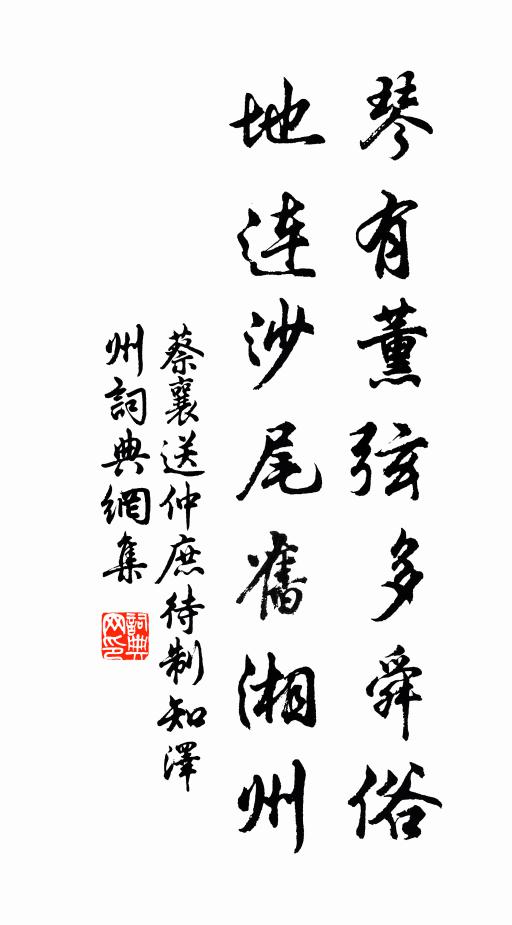 琴有薰弦多舜俗
地连沙尾舊湘州
蔡襄送仲庶待制知澤
州詞典網集
詞典网印